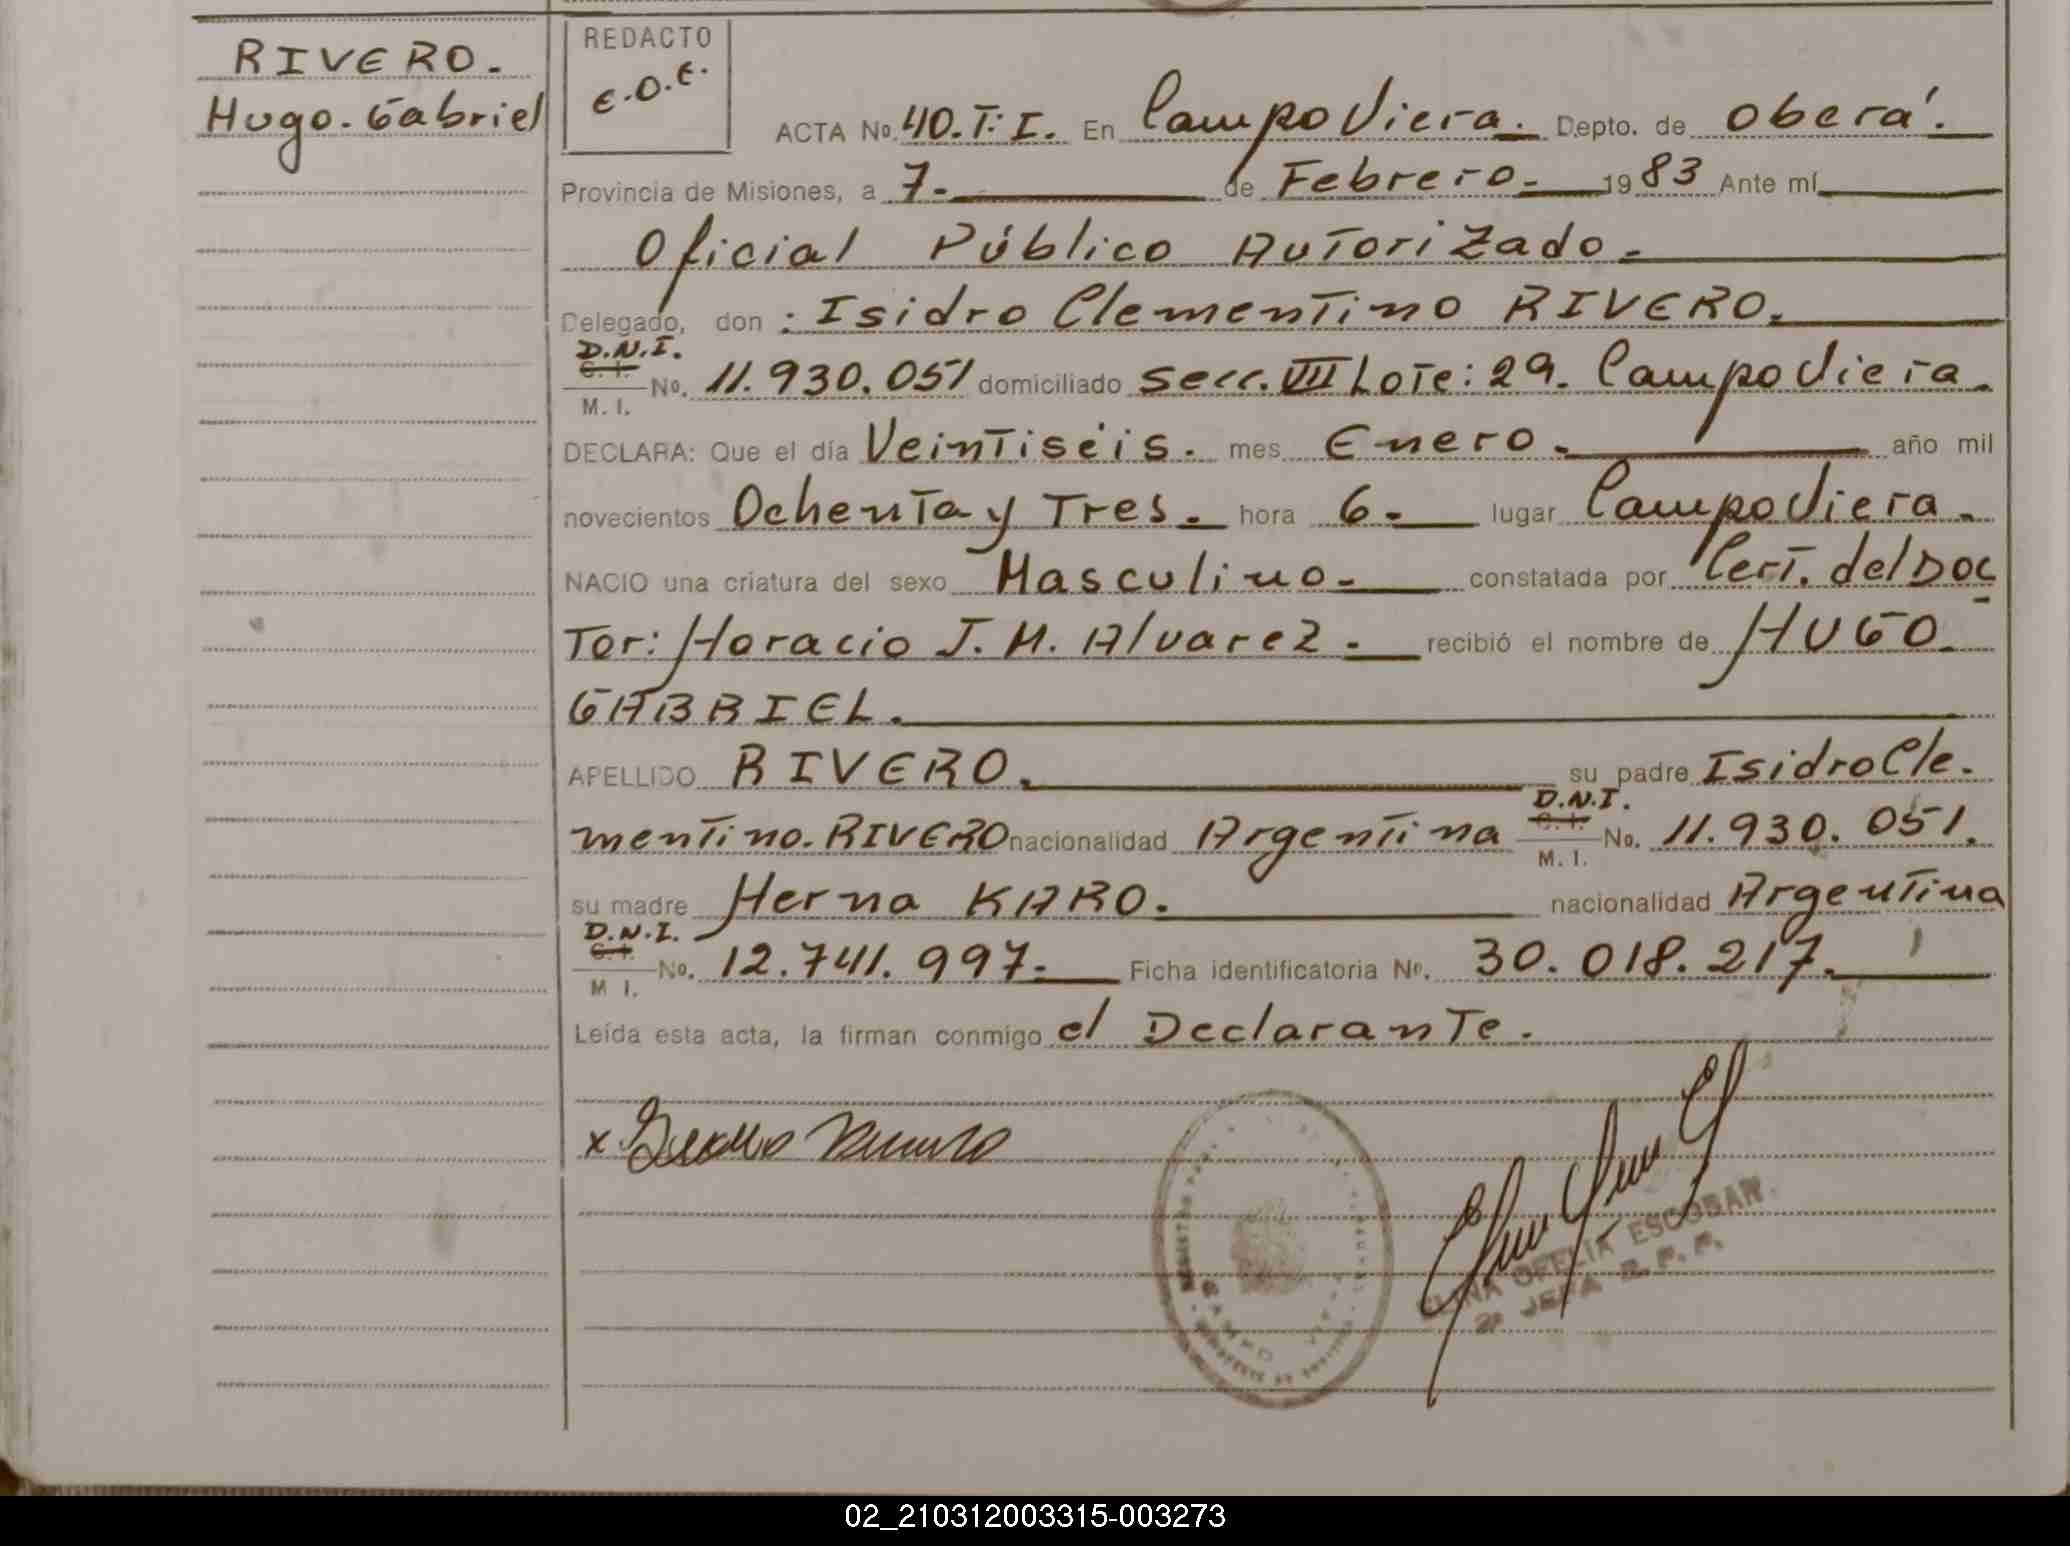 RIVERO.
Hugo. Gabriel
REDACTO
E.O.E.
ACTA No. 40. T: I. En Campo Viera. Depto. de Oberá.
Provincia de Misiones, a 7. de Febrero. 1983 Ante mí
Oficial Público Autorizado.
Delegado, don : Isidro Clementino RIVERO.
D.N.I.
C. I.
M. I.
No. 11.930.051 domiciliado Secc. VIII Lote: 29. Campo Viera.
DECLARA: Que el día Veintiséis. mes Enero. año mil
novecientos Ochenta y Tres. hora 6. lugar Campo Viera.
NACIO una criatura del sexo Masculino. constatada por Cert. del Doc
Tor: Horacio J. M. Alvarez. recibió el nombre de HUGO
GABRIEL.
APELLIDO RIVERO. su padre Isidro Cle.
D.N.I.
C. I.
M. I.
mentino. RIVERO nacionalidad Argentina No. 11.930.051.
su madre Herna KARO. nacionalidad Argentina
D.N.I.
C. I.
M I.
No. 12.741.997. Ficha identificatoria No. 30.018.217.
Leída esta acta, la firman conmigo el Declarante.
x
ELINA OFELIA ESCOBAR
2ª JEFA R. P. P.
02_210312003315-003273